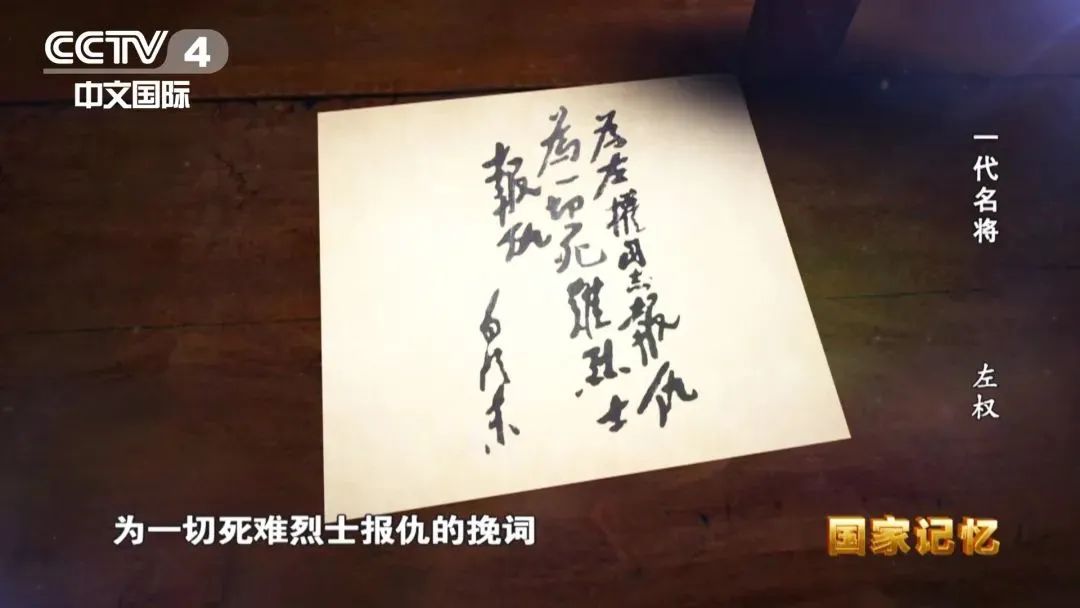 CCTV 4
中文国际
为左權同志報仇
為一切死難烈士
報仇
毛泽东
一代名将
左权
为一切死难烈士报仇的挽词
国家记忆